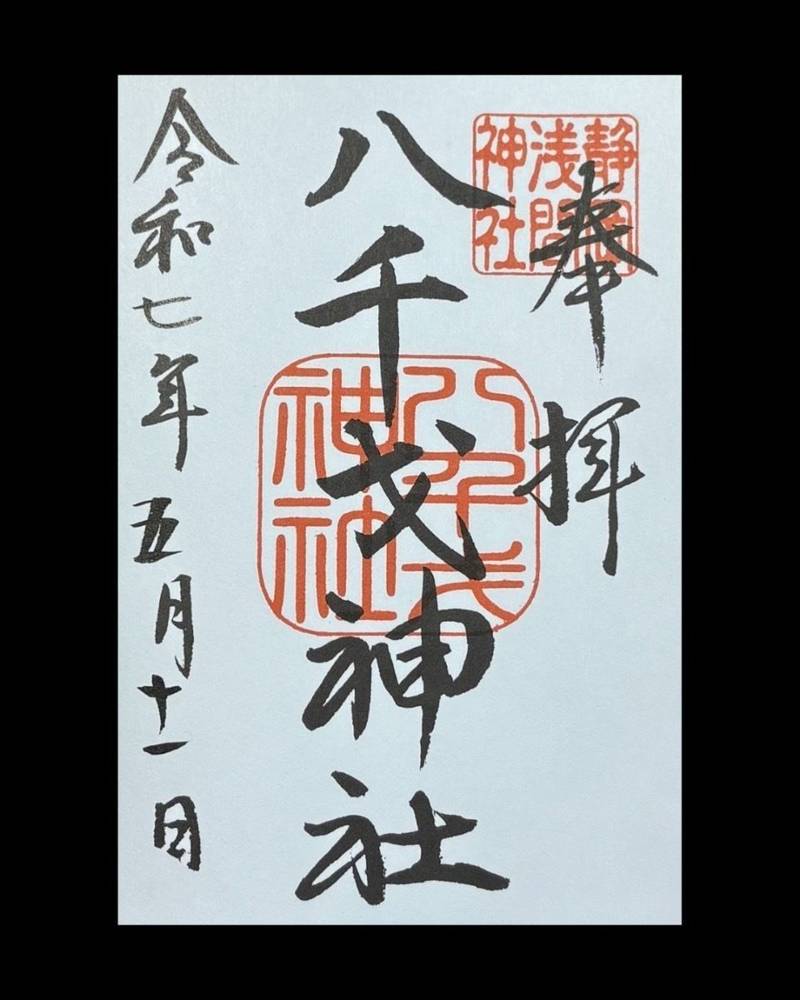 奉拝
静岡
浅間
神社
八千戈神社
八千戈
神社
令和七年五月十一日